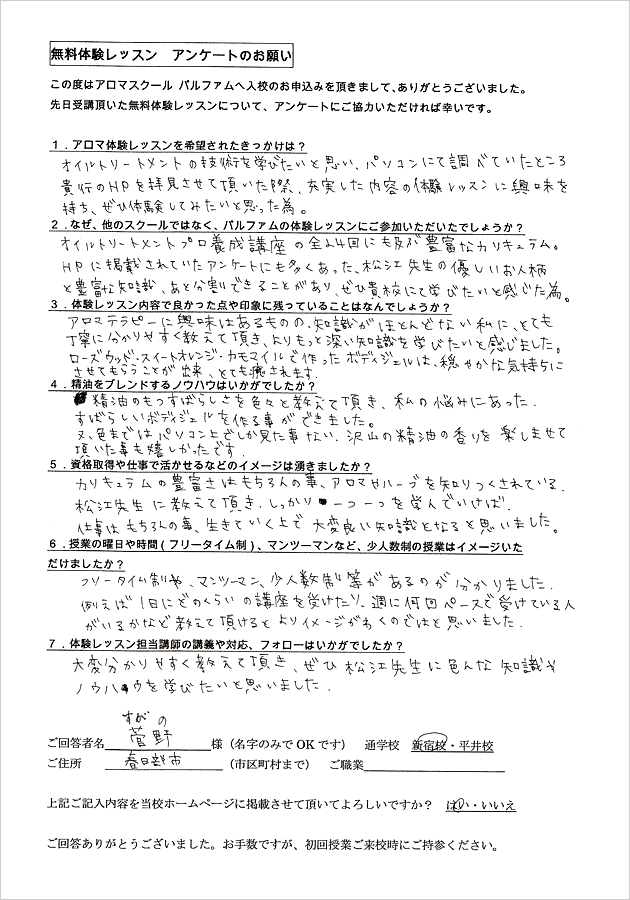 無料体験レッスン　アンケートのお願い
この度はアロマスクール パルファムへ入校のお申込みを頂きまして、ありがとうございました。
先日受講頂いた無料体験レッスンについて、アンケートにご協力いただければ幸いです。
１．アロマ体験レッスンを希望されたきっかけは？
オイルトリートメントの技術を学びたいと思い、パソコンにて調べていたところ
貴行のHPを拝見させて頂いた際、充実した内容の体験レッスンに興味を
持ち、ぜひ体験してみたいと思った為。
２．なぜ、他のスクールではなく、パルファムの体験レッスンにご参加いただいたでしょうか？
オイルトリートメントプロ養成講座の全24回にも及ぶ豊富なカリキュラム。
HPに掲載されていたアンケートにも多くあった、松江先生の優しいお人柄
と豊富な知識、あと分割もできることがあり、ぜひ貴校にて学びたいと感じた為。
３．体験レッスン内容で良かった点や印象に残っていることはなんでしょうか？
アロマテラピーに興味はあるものの、知識がほとんどない私に、とても
丁寧に分かりやすく教えて頂き、よりもっと深い知識を学びたいと感じました。
ローズウッド・スイートオレンジ・カモマイルで作ったボディジェルは、穏やかな気持ちに
させてもらうことが出来、とても癒されます。
４．精油をブレンドするノウハウはいかがでしたか？
精油のもつすばらしさを色々と教えて頂き、私の悩みにあった
すばらしいボディジェルを作る事ができました。
又、色までではパソコン上でしか見た事ない、沢山の精油の香りを楽しませて
頂いた事も嬉しかったです。
５．資格取得や仕事で活かせるなどのイメージは湧きましたか？
カリキュラムの豊富さはもちろんの事、アロマやハーブを知りつくされている、
松江先生に教えて頂き、しっかり一つ一つを学んでいけば、
仕事はもちろんの事、生きていく上で大変良い知識となると思いました。
６．授業の曜日や時間（フリータイム制）、マンツーマンなど、少人数制の授業はイメージいた
だけましたか？
フリータイム制や、マンツーマン、少人数制等があるのが分かりました。
例えば1日にどのくらいの講座を受けたり、週に何回ペースで受けている人
がいるかなど教えて頂けるとよりイメージがわくのではと思いました。
７．体験レッスン担当講師の講義や対応、フォローはいかがでしたか？
大変分かりやすく教えて頂き、ぜひ松江先生に色んな知識や
ノウハウを学びたいと思いました。
すがの
ご回答者名 菅野 様（名字のみでOKです）　通学校　新宿校・平井校
ご住所　春日部市　（市区町村まで）　ご職業
上記ご記入内容を当校ホームページに掲載させて頂いてよろしいですか？　はい・いいえ
ご回答ありがとうございました。お手数ですが、初回授業ご来校時にご持参ください。